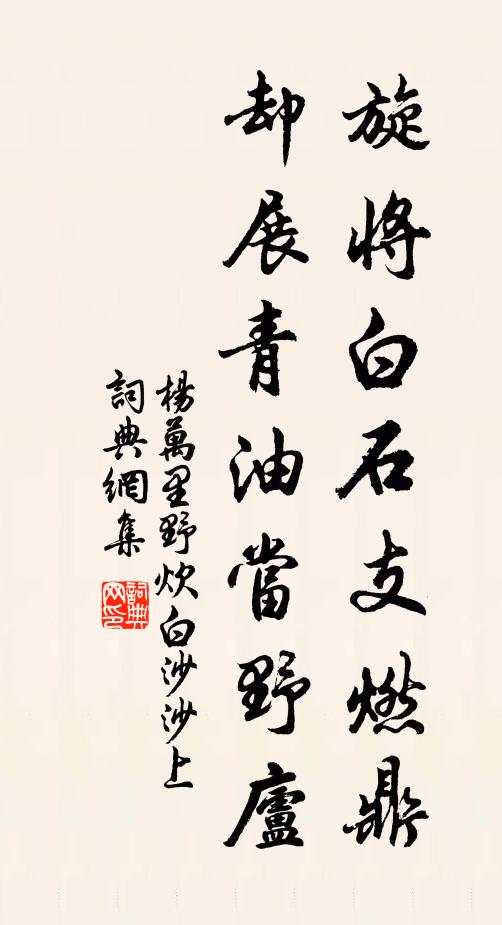 旋將白石支燃鼎
却展青油當野廬
楊萬里野炊白沙沙上
詞典網集
詞典网印